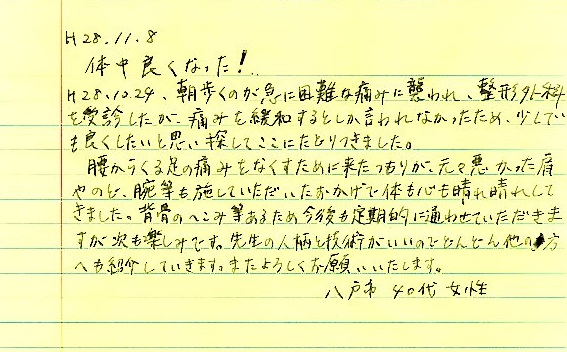 H28.11.8
体中良くなった!
H28.10.24、朝歩くのが急に困難な痛みに襲われ、整形外科
を受診したが、痛みを緩和するとしか言われなかったため、少しで
も良くしたいと思い探してここにたどりつきました。
腰からくる足の痛みをなくすために来たつもりが、元々悪かった肩
やのど、腕等も施していただいたおかげで体も心も晴れ晴れして
きました。背骨のへこみ等あるため今後も定期的に通わせていただきま
すが次も楽しみです。先生の人柄と技術がいいのでどんどん他の方
へも紹介していきます。またよろしくお願いいたします。
八戸市 40代 女性